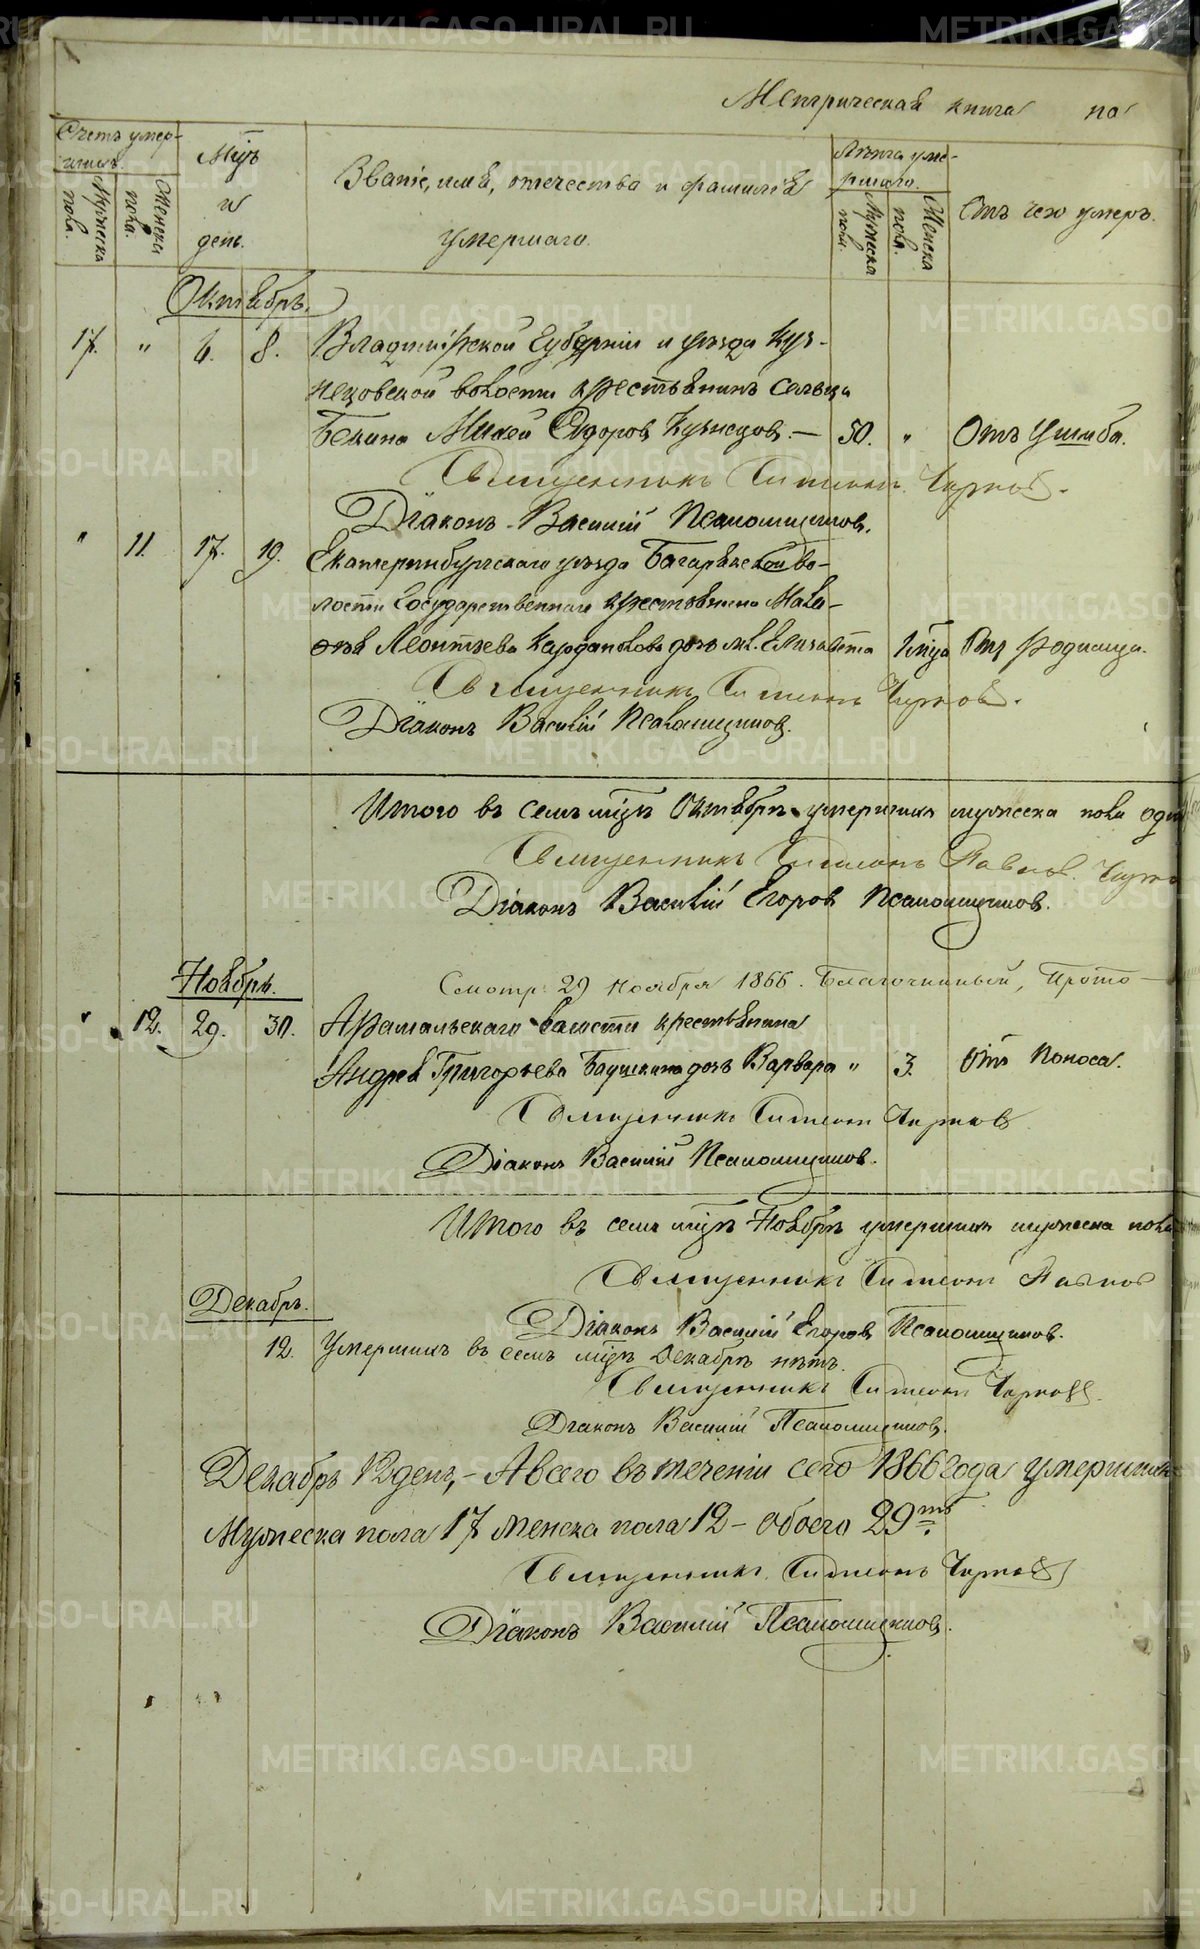 Метрическая книга на
Счетъ умер-
шихъ.
Мужеска пола.
Женска пола.
Мцъ
и
день.
Званіе, имя, отечество и фамилія
умершаго.
Лѣта уме-
ршаго.
Мужеска пола.
Женска пола.
Отъ чего умеръ.
Октябрь.
17. " 6. 8. Владимірской Губерніи и уѣзда Куз-
нецовской волости крестьянинъ сельца
Бекина Михей Ѳедоровъ Кузнецовъ. — 50. " Отъ Ушиба.
Священникъ Симеонъ
Діаконъ Василій Псаломщиковъ.
" 11. 17. 19. Екатеринбургскаго уѣзда Багарякской во-
лости Государственнаго крестьянина
Леонтьева дочь мл. Елисавета Отъ Родимца.
Священникъ Симеонъ
Діаконъ Василій Псаломщиковъ.
Итого въ семъ мцѣ Октябрѣ умершихъ мужеска пола
Священникъ Симеонъ Павловъ
Діаконъ Василій Егоровъ Псаломщиковъ.
Ноябрь.
Смотр: 29 ноября 1866. Благочинный, Прото-
" 12. 29. 30. Арамильскаго волости крестьянина
Андрея Григорьева дочь Варвара " 3. Отъ Поноса.
Священникъ Симеонъ
Діаконъ Василій Псаломщиковъ.
Итого въ семъ мцѣ Ноябрѣ умершихъ мужеска пола
Священникъ Симеонъ Павловъ
Декабрь.
Діаконъ Василій Егоровъ Псаломщиковъ.
12. Умершихъ въ семъ мцѣ Декабрѣ нѣтъ.
Священникъ Симеонъ
Діаконъ Василій Псаломщиковъ.
Декабрь 12 день, - А всего въ теченіи сего 1866 года умершихъ
Мужеска пола 17 женска пола 12 - обоего 29ть
Священникъ Симеонъ
Діаконъ Василій Псаломщиковъ.
METRIKI.GASO-URAL.RU